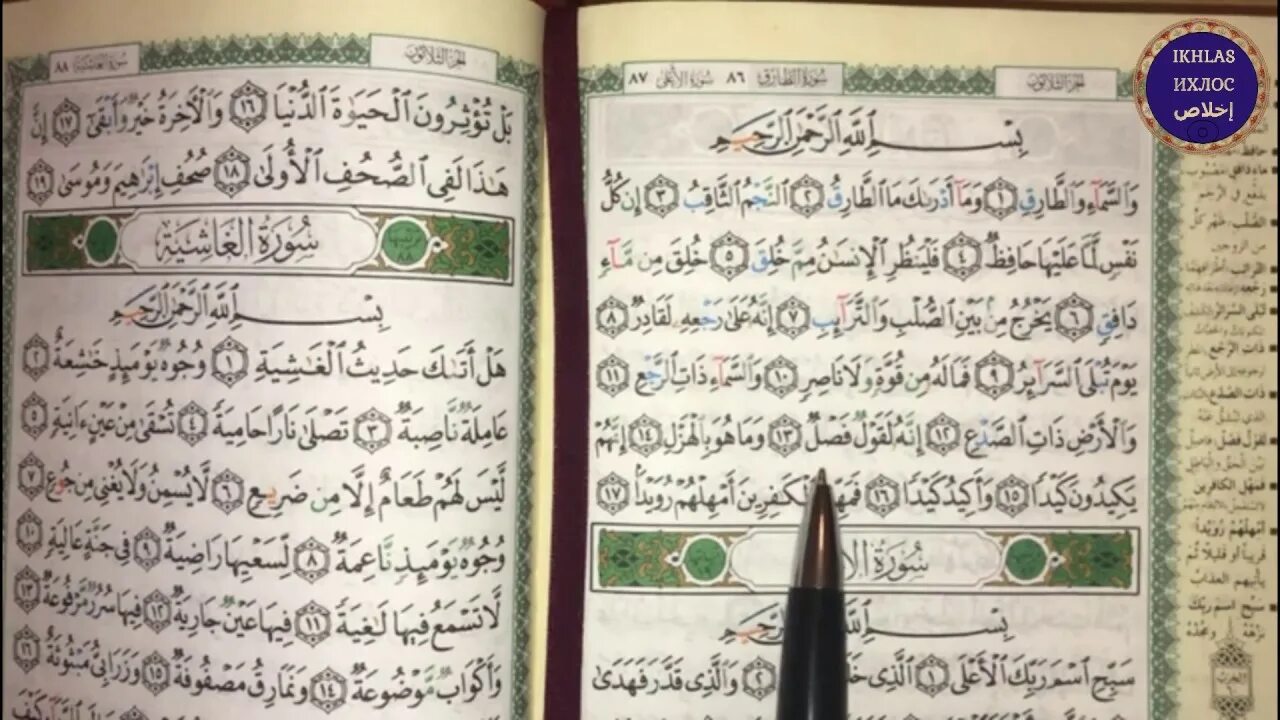 IKHLAS
ИХЛОС
إخلاص
الجزء الثلاثون
سورة الطارق ٨٦
سورة الأعلى ٨٧
بِسْمِ ٱللَّهِ ٱلرَّحْمَٰنِ ٱلرَّحِيمِ
وَٱلسَّمَآءِ وَٱلطَّارِقِ ١ وَمَآ أَدْرَىٰكَ مَا ٱلطَّارِقُ ٢ ٱلنَّجْمُ ٱلثَّاقِبُ ٣ إِن كُلُّ
نَفْسٍ لَّمَّا عَلَيْهَا حَافِظٌ ٤ فَلْيَنظُرِ ٱلْإِنسَٰنُ مِمَّ خُلِقَ ٥ خُلِقَ مِن مَّآءٍ
دَافِقٍ ٦ يَخْرُجُ مِنۢ بَيْنِ ٱلصُّلْبِ وَٱلتَّرَآئِبِ ٧ إِنَّهُۥ عَلَىٰ رَجْعِهِۦ لَقَادِرٌ ٨
يَوْمَ تُبْلَى ٱلسَّرَآئِرُ ٩ فَمَا لَهُۥ مِن قُوَّةٍ وَلَا نَاصِرٍ ١٠ وَٱلسَّمَآءِ ذَاتِ ٱلرَّجْعِ ١١
وَٱلْأَرْضِ ذَاتِ ٱلصَّدْعِ ١٢ إِنَّهُۥ لَقَوْلٌ فَصْلٌ ١٣ وَمَا هُوَ بِٱلْهَزْلِ ١٤ إِنَّهُمْ
يَكِيدُونَ كَيْدًا ١٥ وَأَكِيدُ كَيْدًا ١٦ فَمَهِّ لْكَٰفِرِينَ أَمْهِلْهُمْ رُوَيْدًۢا ١٧
سُورَةُ الأ
بِسْمِ ٱللَّهِ ٱلرَّحِيمِ
سَبِّحِ ٱسْمَ رَبِّكَ ٱلْأَعْلَى ١ ٱلَّذِى خَلَ ٢ وَٱلَّذِى قَدَّرَ فَهَدَىٰ
الجزء الثلاثون
سورة الغاشية ٨٨
بَلْ تُؤْثِرُونَ ٱلْحَيَوٰةَ ٱلدُّنْيَا ١٦ وَٱلْأَخِرَةُ خَيْرٌ وَأَبْقَىٰٓ ١٧ إِنَّ
هَٰذَا لَفِى ٱلصُّحُفِ ٱلْأُولَىٰ ١٨ صُحُفِ إِبْرَٰهِيمَ وَمُوسَىٰ ١٩
سُورَةُ الغَاشِيَةِ
بِسْمِ ٱللَّهِ ٱلرَّحْمَٰنِ ٱلرَّحِيمِ
هَلْ أَتَىٰكَ حَدِيثُ ٱلْغَٰشِيَةِ ١ وُجُوهٌ يَوْمَئِذٍ خَٰشِعَةٌ ٢
عَامِلَةٌ نَّاصِبَةٌ ٣ تَصْلَىٰ نَارًا حَامِيَةً ٤ تُسْقَىٰ مِنْ عَيْنٍ ءَانِيَةٍ ٥
لَّيْسَ لَهُمْ طَعَامٌ إِلَّا مِن ضَرِيعٍ ٦ لَّا يُسْمِنُ وَلَا يُغْنِى مِن جُوعٍ ٧
وُجُوهٌ يَوْمَئِذٍ نَّاعِمَةٌ ٨ لِّسَعْيِهَا رَاضِيَةٌ ٩ فِى جَنَّةٍ عَالِيَةٍ ١٠
لَّا تَسْمَعُ فِيهَا لَٰغِيَةً ١١ فِيهَا عَيْنٌ جَارِيَةٌ ١٢ فِيهَا سُرُرٌ مَّرْفُوعَةٌ ١٣
وَأَكْوَابٌ مَّوْضُوعَةٌ ١٤ وَنَمَارِقُ مَصْفُوفَةٌ ١٥ وَزَرَابِىُّ مَبْثُوثَةٌ ١٦